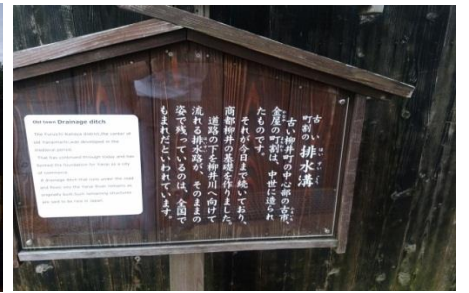 Old town Drainage ditch
The Furuichi Kanaya district, the center of
old Yanaimachi was developed in the
medieval period.
That has continued through today and has
formed the foundation for Yanai as a city
of commerce.
A drainage ditch that runs under the road
and flows into the Yanai River remains as
originally built. Such remaining structures
are said to be rare in Japan.
古い町割の排水溝
古い柳井町の中心部の古市、
金屋の町割は、中世に造られ
たものです。
それが今日まで続いており、
商都柳井の基礎を作りました。
道路の下を柳井川へ向けて
流れる排水路が、そのままの
姿で残っているのは、全国で
もまれだといわれています。